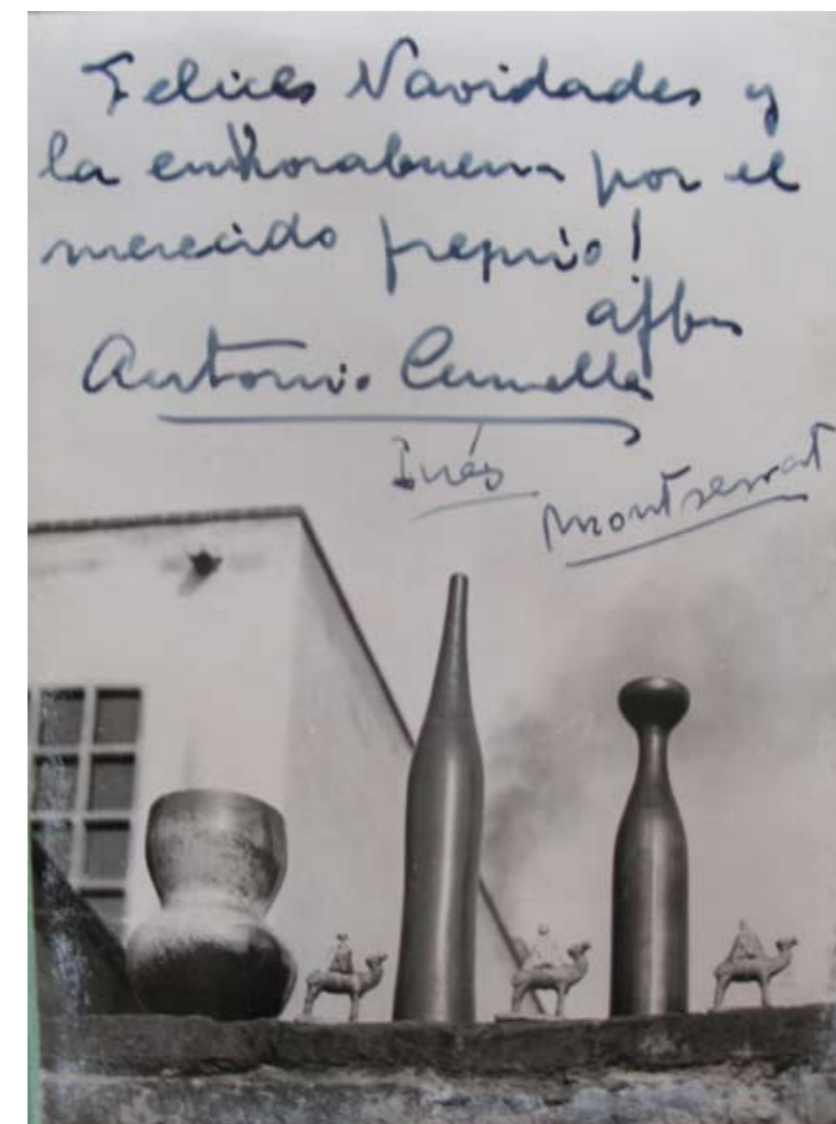 Felices Navidades y
la enhorabuena por el
merecido premio!
Antonio Cumella
Inés
Montserrat